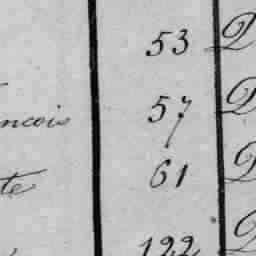 53 D
ncois 57 D
te 61 D
122 D